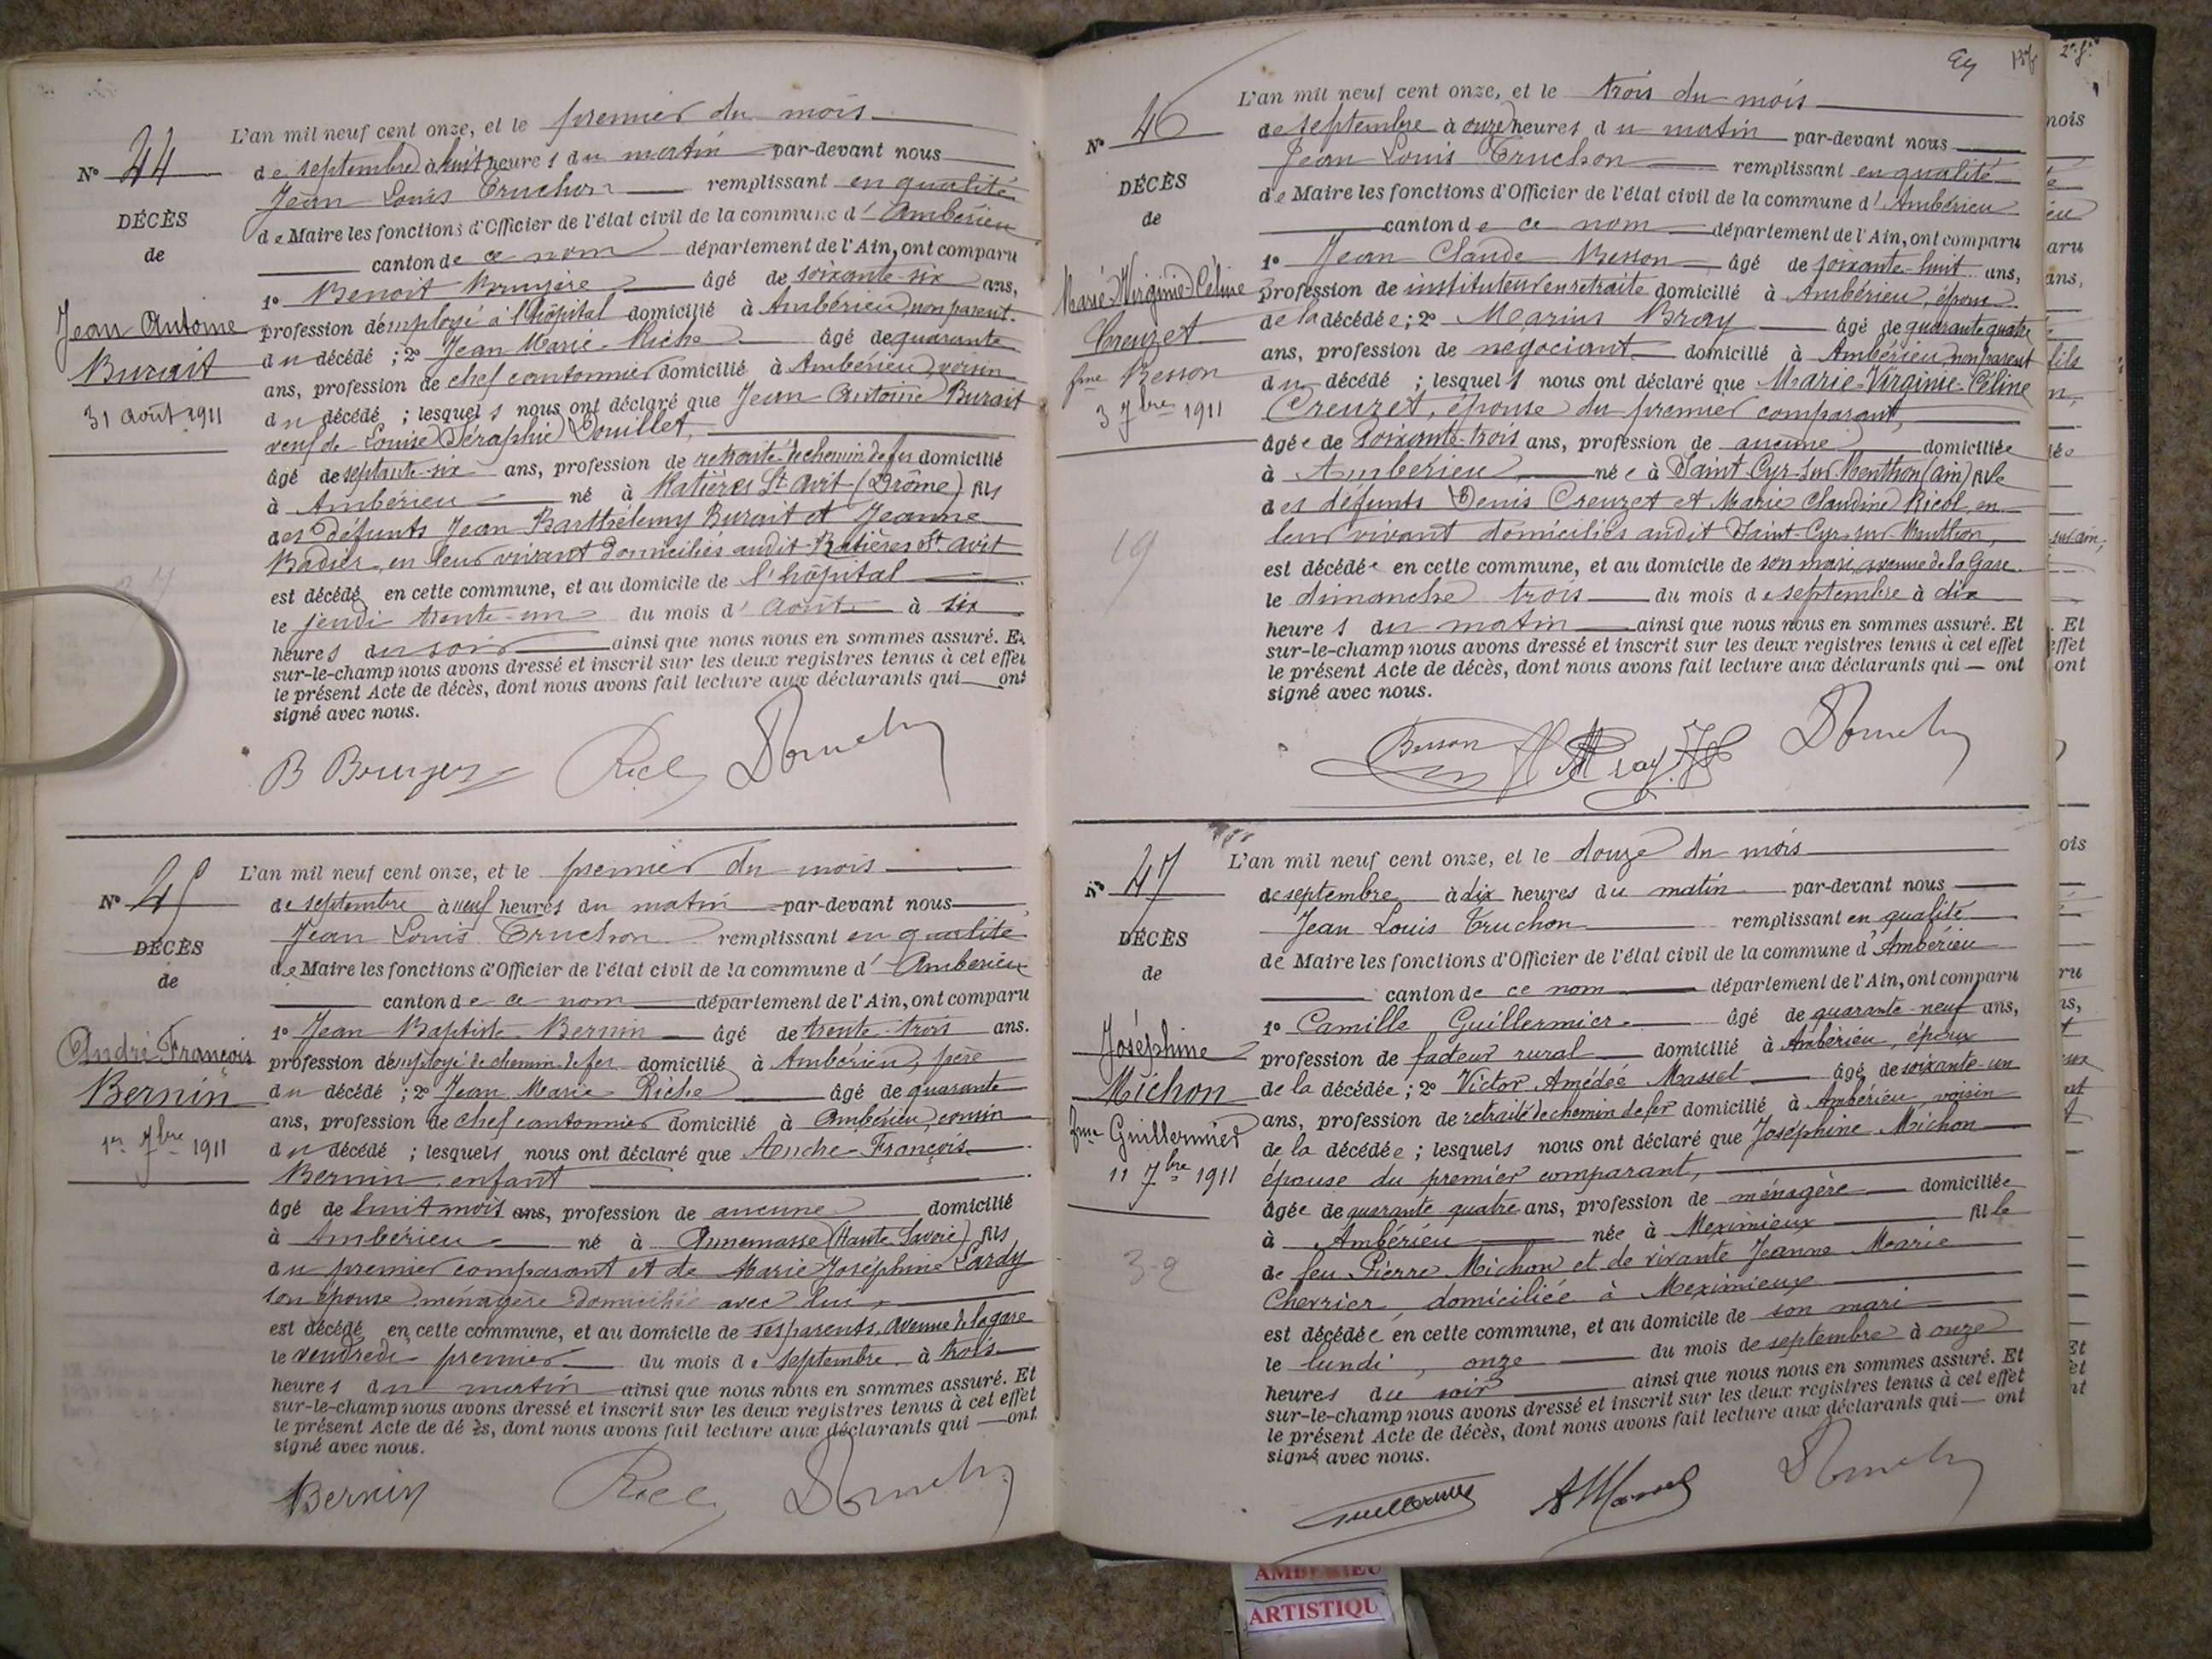 N° 44
DÉCÈS
de
Jean Antoine
Burait
31 août 1911
L'an mil neuf cent onze, et le premier du mois
de septembre à huit heures du matin par-devant nous
Jean Louis Truchon remplissant en qualité
de Maire les fonctions d'Officier de l'état civil de la commune d'Ambérieu
canton de ce nom département de l'Ain, ont comparu
1° Benoit Bruyère âgé de soixante-six ans,
profession d'employé à l'hôpital domicilié à Ambérieu, non parent
du décédé ; 2° Jean Marie Riche âgé de quarante
ans, profession de chef cantonnier domicilié à Ambérieu, voisin
du décédé ; lesquels nous ont déclaré que Jean Antoine Burait
veuf de Louise Séraphie Douillet,
âgé de septante-six ans, profession de retraité de chemin de fer domicilié
à Ambérieu né à Ratières St Avit (Drôme) fils
des défunts Jean Barthélemy Burait et Jeanne
Badier, en leur vivant domiciliés audit Ratières St Avit
est décédé en cette commune, et au domicile de l'hôpital
le jeudi trente-un du mois d'août à six
heures du soir ainsi que nous nous en sommes assuré. Et
sur-le-champ nous avons dressé et inscrit sur les deux registres tenus à cet effet
le présent Acte de décès, dont nous avons fait lecture aux déclarants qui ont
signé avec nous.
B Bruyère
N° 45
DÉCÈS
de
André François
Bernin
1er 7bre 1911
L'an mil neuf cent onze, et le premier du mois
de septembre à neuf heures du matin par-devant nous
Jean Louis Truchon remplissant en qualité
de Maire les fonctions d'Officier de l'état civil de la commune d'Ambérieu
canton de ce nom département de l'Ain, ont comparu
1° Jean Baptiste Bernin âgé de trente-trois ans.
profession d'employé de chemin de fer domicilié à Ambérieu, père
du décédé ; 2° Jean Marie Riche âgé de quarante
ans, profession de chef cantonnier domicilié à Ambérieu, cousin
du décédé ; lesquels nous ont déclaré que André-François
Bernin enfant
âgé de huit mois ans, profession de aucune domicilié
à Ambérieu né à Annemasse (Haute Savoie) fils
du premier comparant et de Marie Joséphine Lardy
son épouse ménagère domiciliée avec lui,
est décédé en cette commune, et au domicile de ses parents, avenue de la gare
le vendredi premier du mois de septembre à trois
heures du matin ainsi que nous nous en sommes assuré. Et
sur-le-champ nous avons dressé et inscrit sur les deux registres tenus à cet effet
le présent Acte de décès, dont nous avons fait lecture aux déclarants qui ont
signé avec nous.
Bernin
N° 46
DÉCÈS
de
Marie-Virginie-Céline
Creuzet
fme Besson
3 7bre 1911
19
L'an mil neuf cent onze, et le trois du mois
de septembre à onze heures du matin par-devant nous
Jean Louis Truchon remplissant en qualité
de Maire les fonctions d'Officier de l'état civil de la commune d'Ambérieu
canton de ce nom département de l'Ain, ont comparu
1° Jean Claude Besson âgé de soixante-huit ans,
profession de instituteur en retraite domicilié à Ambérieu, époux
de la décédée ; 2° Marius Bray âgé de quarante quatre
ans, profession de négociant domicilié à Ambérieu, non parent
du décédé ; lesquels nous ont déclaré que Marie-Virginie-Céline
Creuzet, épouse du premier comparant,
âgée de soixante-trois ans, profession de aucune domiciliée
à Ambérieu née à Saint-Cyr-sur-Menthon (Ain) fille
des défunts Denis Creuzet et Marie Claudine Ricol, en
leur vivant domiciliés audit Saint-Cyr-sur-Menthon,
est décédée en cette commune, et au domicile de son mari, avenue de la Gare
le dimanche trois du mois de septembre à dix
heures du matin ainsi que nous nous en sommes assuré. Et
sur-le-champ nous avons dressé et inscrit sur les deux registres tenus à cet effet
le présent Acte de décès, dont nous avons fait lecture aux déclarants qui ont
signé avec nous.
Besson
N° 47
DÉCÈS
de
Joséphine
Michon
fme Guillermier
11 7bre 1911
3-2
L'an mil neuf cent onze, et le douze du mois
de septembre à dix heures du matin par-devant nous
Jean Louis Truchon remplissant en qualité
de Maire les fonctions d'Officier de l'état civil de la commune d'Ambérieu
canton de ce nom département de l'Ain, ont comparu
1° Camille Guillermier âgé de quarante-neuf ans,
profession de facteur rural domicilié à Ambérieu, époux
de la décédée ; 2° Victor Amédée Masset âgé de soixante-un
ans, profession de retraité de chemin de fer domicilié à Ambérieu, voisin
de la décédée ; lesquels nous ont déclaré que Joséphine Michon
épouse du premier comparant,
âgée de quarante quatre ans, profession de ménagère domiciliée
à Ambérieu née à Meximieux fille
de feu Pierre Michon et de vivante Jeanne Marie
Chevrier, domiciliée à Meximieux
est décédée en cette commune, et au domicile de son mari
le lundi, onze du mois de septembre à onze
heures du soir ainsi que nous nous en sommes assuré. Et
sur-le-champ nous avons dressé et inscrit sur les deux registres tenus à cet effet
le présent Acte de décès, dont nous avons fait lecture aux déclarants qui ont
signé avec nous.
AMBERIEU
ARTISTIQU